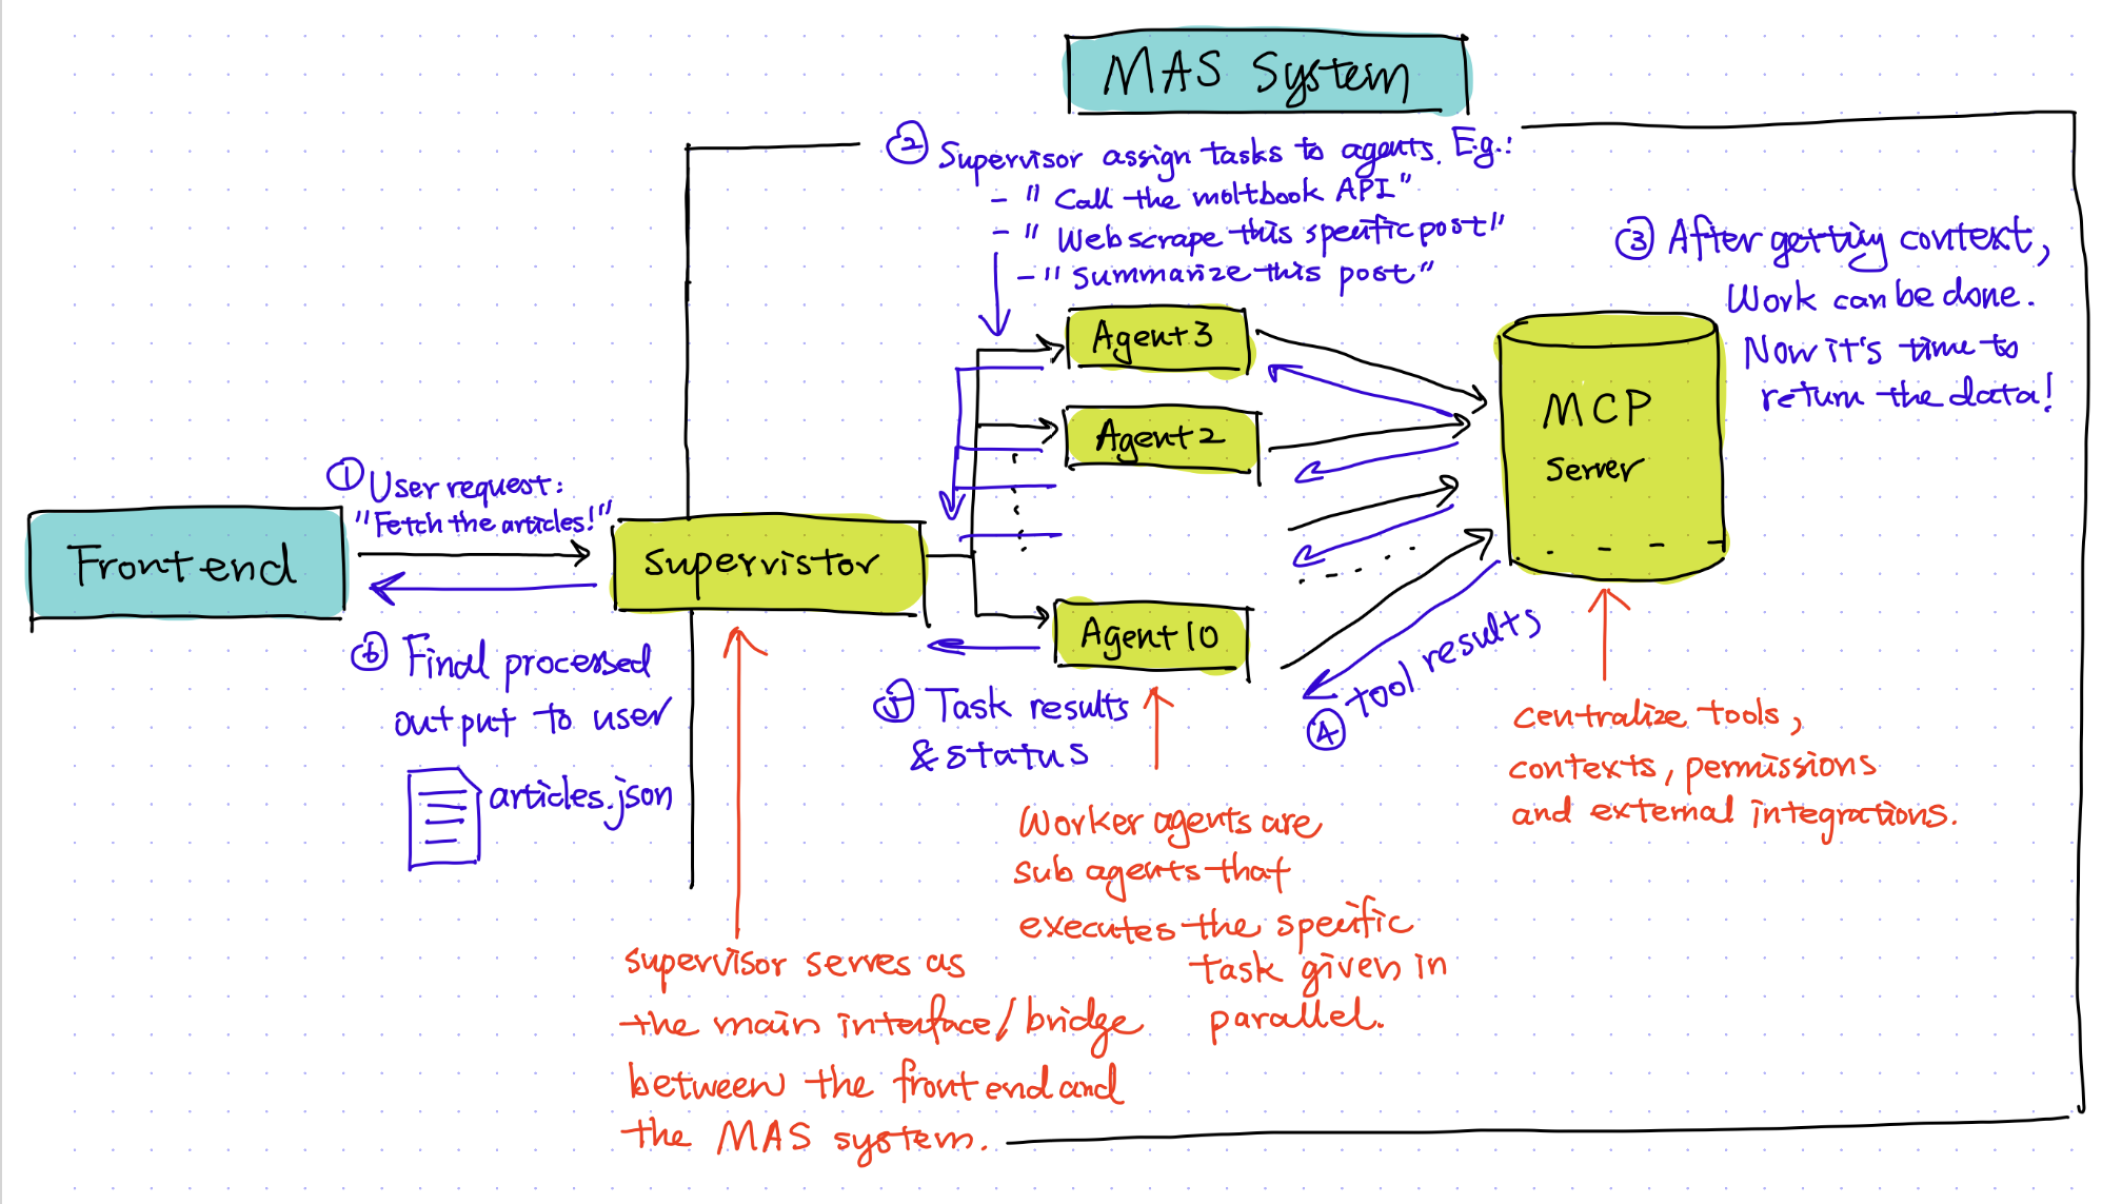 MAS System
② Supervisor assign tasks to agents. E.g.:
- "Call the moltbook API"
- "Web scrape this specific post"
- "Summarize this post"
③ After getting context,
Work can be done.
Now it's time to
return the data!
Agent 3
Agent 2
MCP
Server
① User request:
"Fetch the articles!"
Frontend
Supervistor
Agent 10
⑥ Final processed
output to user
articles.json
⑤ Task results
& status
④ tool results
centralize tools,
contexts, permissions
and external integrations.
Worker agents are
sub agents that
executes the specific
task given in
parallel.
supervisor serves as
the main interface/bridge
between the frontend and
the MAS system.